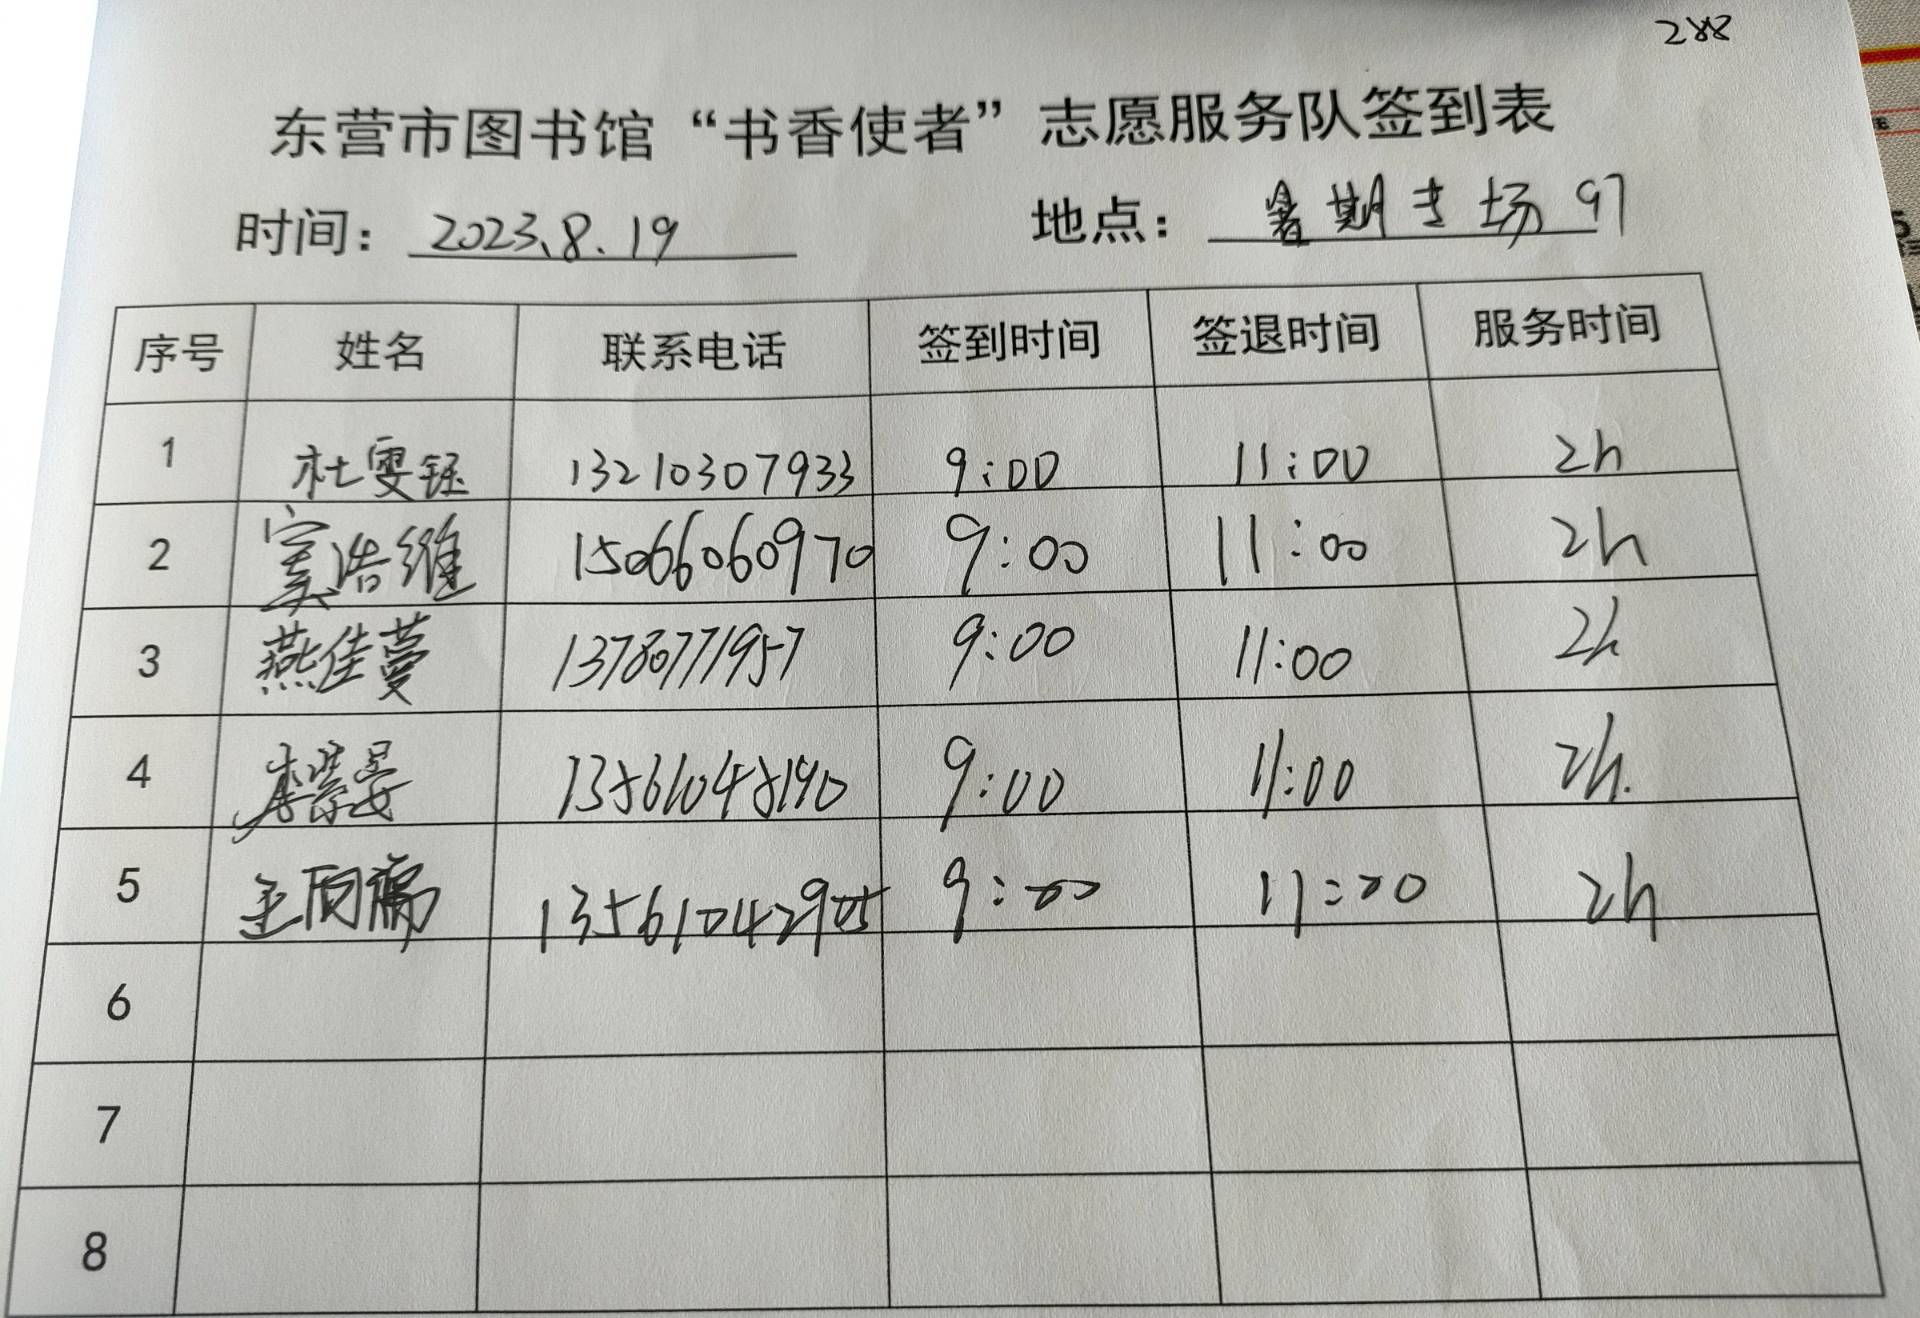 288
东营市图书馆“书香使者”志愿服务队签到表
时间：2023.8.19 地点：暑期专场97
序号 姓名 联系电话 签到时间 签退时间 服务时间
1 杜雯钰 13210307933 9:00 11:00 2h
2 窦浩维 15066060970 9:00 11:00 2h
3 燕佳蔓 13780771957 9:00 11:00 2h
4 李紫晏 13561048190 9:00 11:00 2h.
5 王 13561042905 9:00 11:00 2h
6
7
8